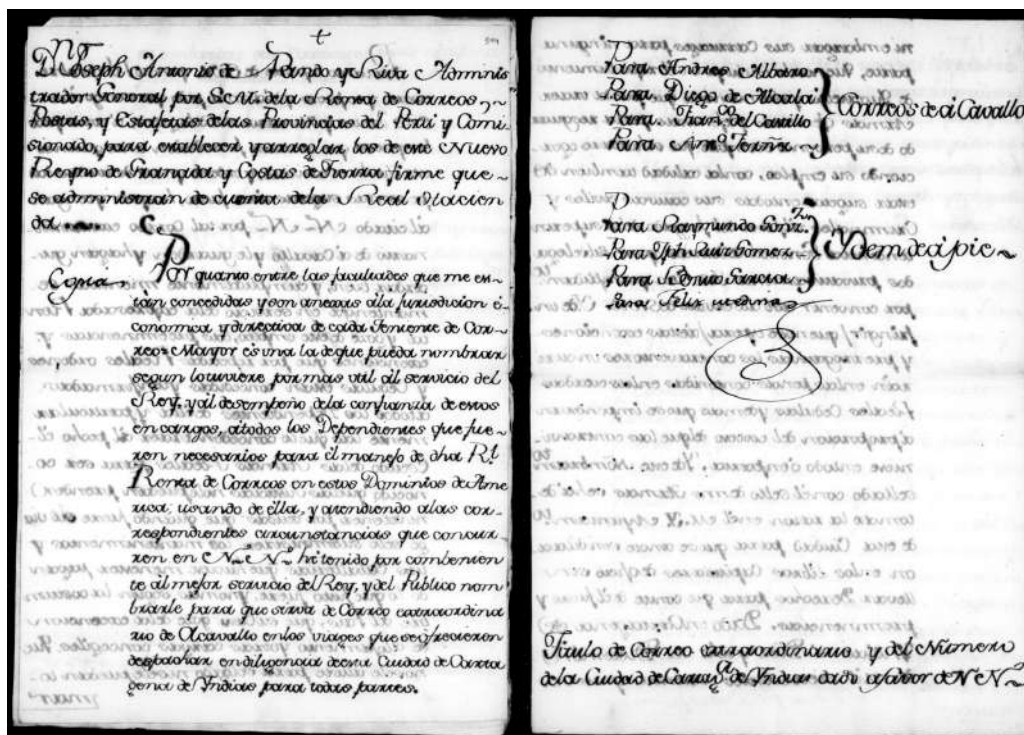 D.ⁿ Joseph Antonio de Pando y Riva Adminis
trador General por S. M. de la Renta de Correos,
Postas, y Estafetas delas Provincias del Perú y Comi-
sionado, para establecer, y arreglar los de este Nuevo
Reyno de Granada y Costas de Tierra firme que
se administran de cuenta dela Real Hacien
da.
Copia
Por quanto entre las facultades que me es-
tan concedidas y son anexas ála jurisdicion é-
conomica y directiva de cada Teniente de Cor-
reo Mayor es una la de que pueda nombrar
segun lo tuviere por mas util al servicio del
Rey, y al desempeño dela confianza de estos
encargos, átodos los Dependientes que fue-
ren necesarios para el manejo de dha R.l
Renta de Correos en estos Dominios de Ame
rica; usando de ella, y atendiendo alas cor-
respondientes circunstancias que concur-
ren en N. N. he tenido por combenien
te al mejor servicio del Rey, y del Publico nom
brarle para que sirva de Correo extraordina
rio de Acavallo enlos viages que se ofrecieren
despachar en diligencia de esta Ciudad de Carta
gena de Yndias para todas partes.
Para Andres Albaro
Para Diego de Alcalá
Para Fran.co del Castillo
Para Ant.o
Correos de á Cavallo
Para Raymundo
Para Jph Ruiz Gomez
Para Garcia
Para Felix medina
Ydem de á pie
Titulo de Correo extraordinario y del Número
de la Ciudad de Cartag.a de Yndias dado afavor de N. N.